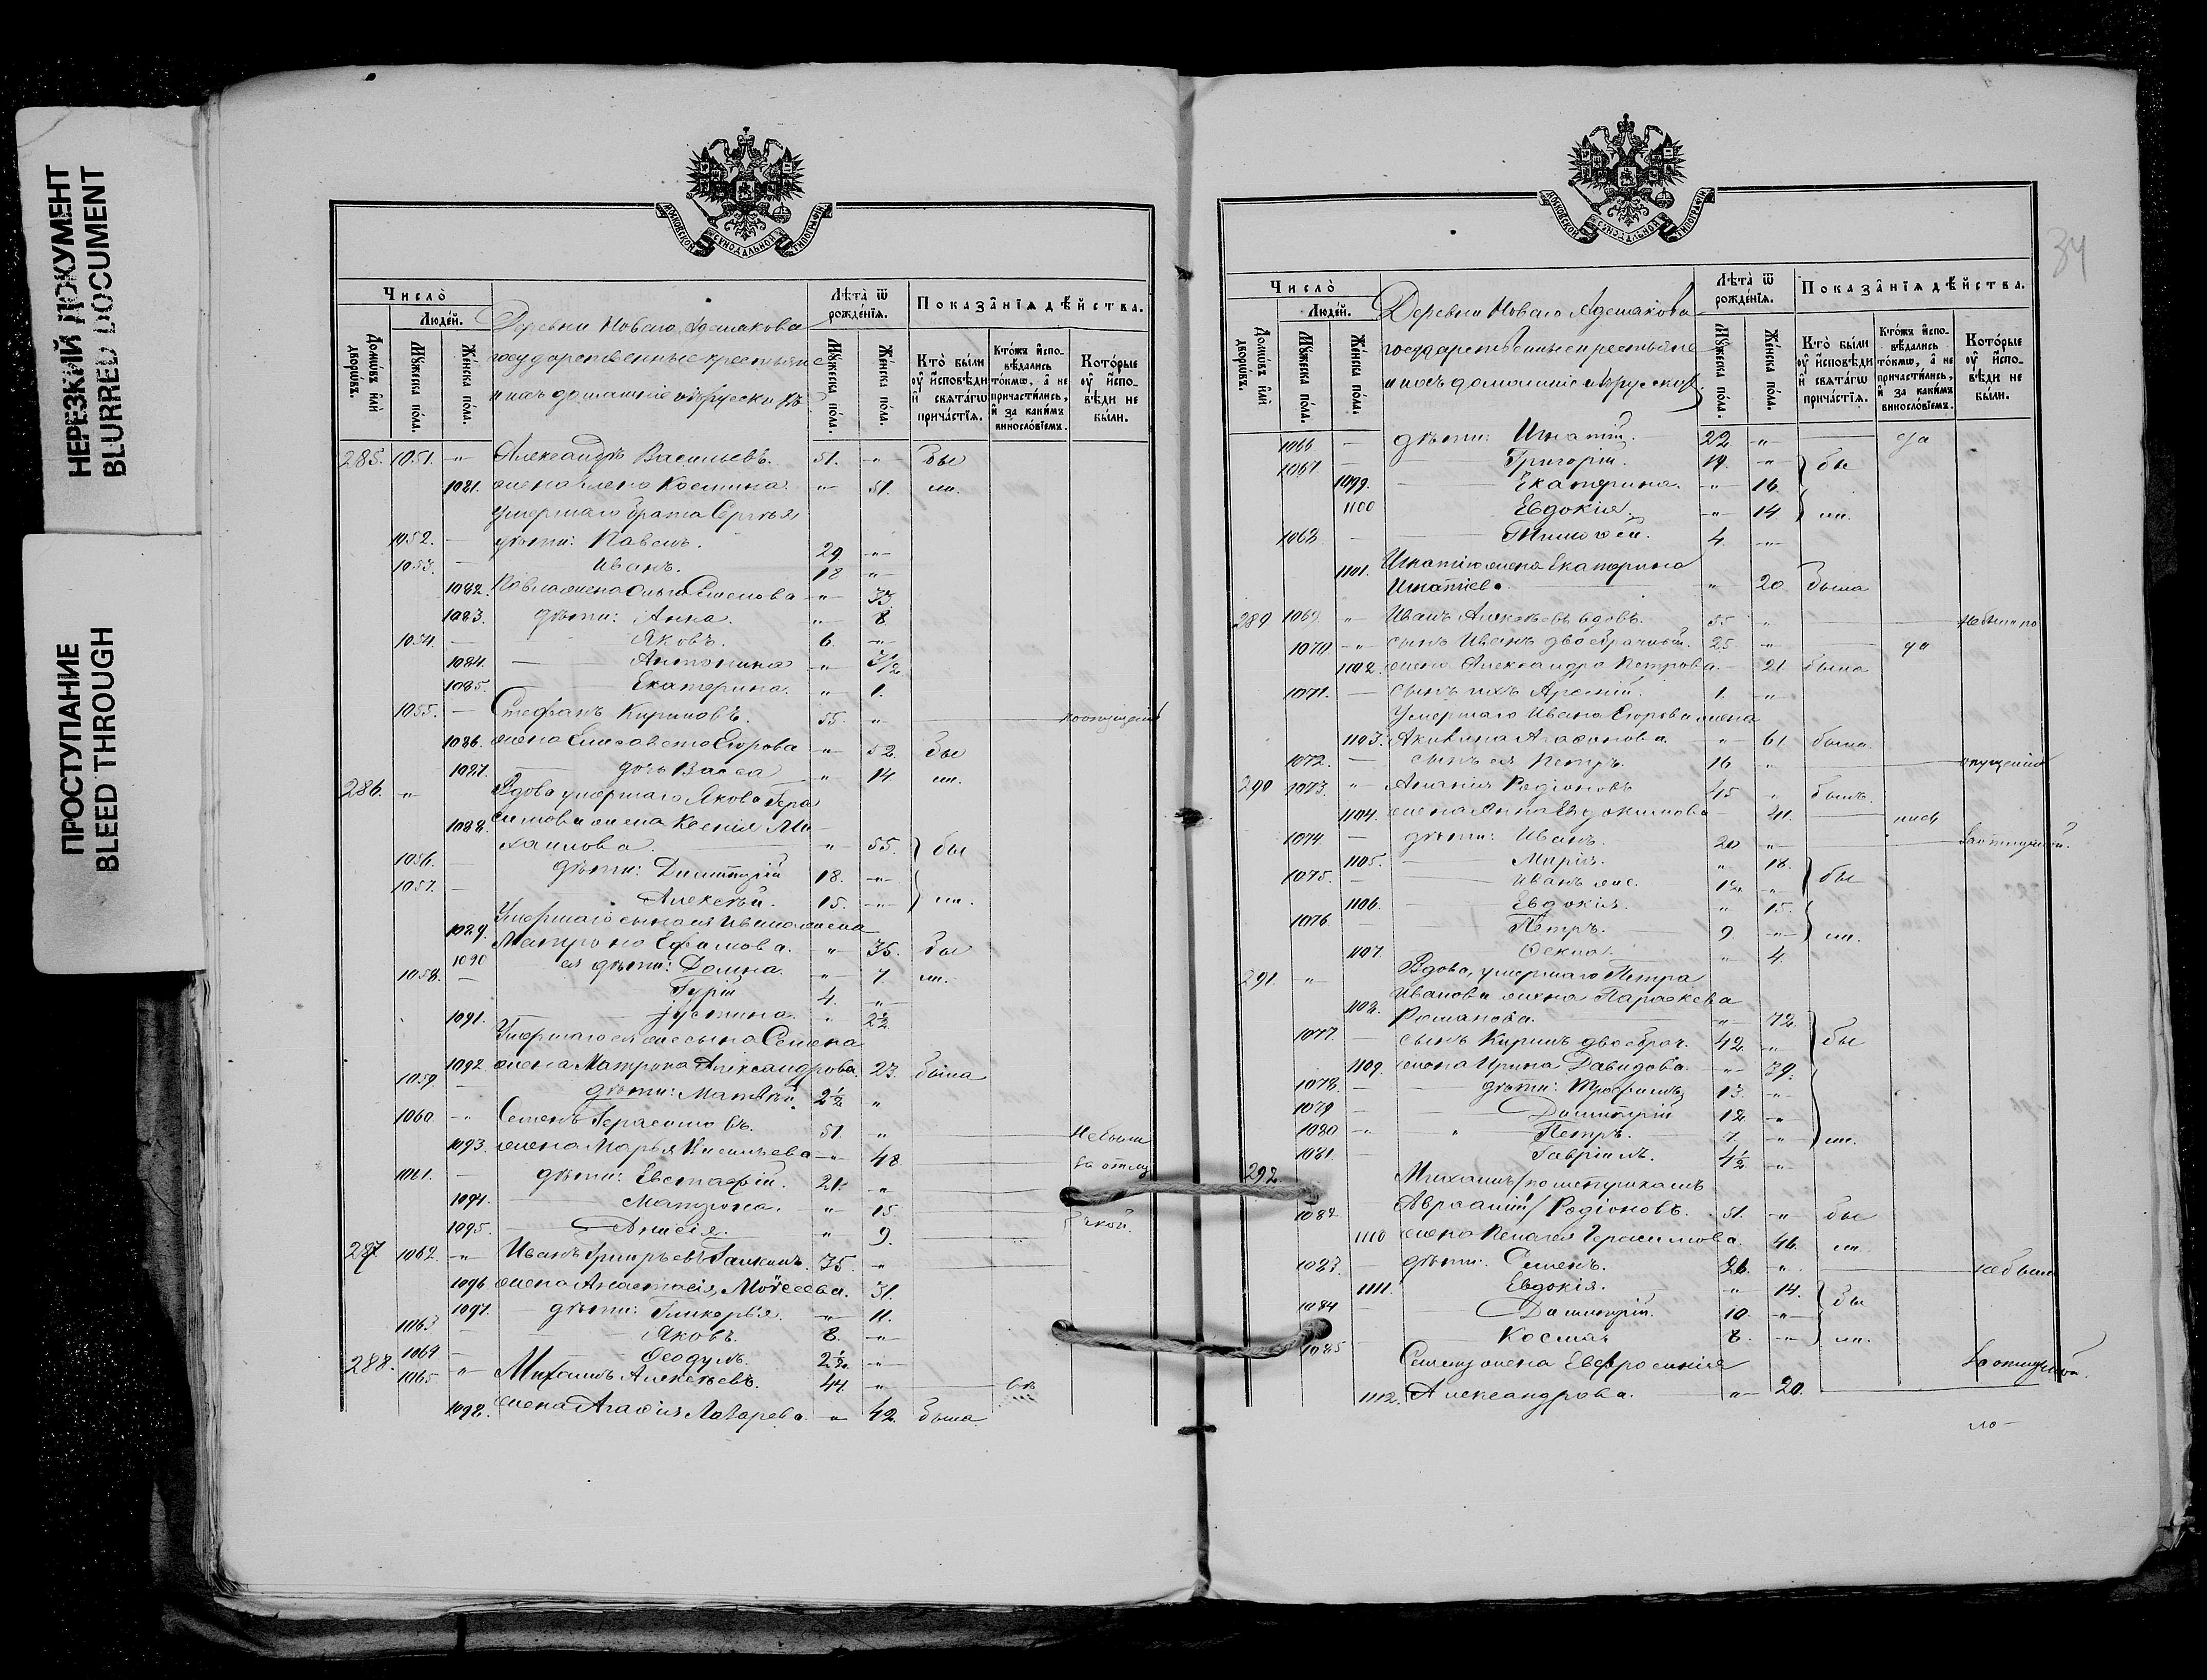 НЕРЕЗКИЙ ДОКУМЕНТ
BLURRED DOCUMENT
ПРОСТУПАНИЕ
BLEED THROUGH
МОСКОВСКОЙ СѴНОДАЛЬНОЙ ТИПОГРАФІИ
Число̀
Люде́й.
Домѡ́въ и҆лѝ дворѡ́въ.
Мꙋ́жеска по́ла.
Же́нска по́ла.
Деревни Новаго Адемакова
государственные крестьяне
и ихъ домашніе
Лѣ́та ѿ рожде́нїѧ.
Мꙋ́жеска по́ла.
Же́нска по́ла.
Показа̑нїѧ дѣ́йства.
Кто̀ бы́ли ᲂу҆ и҆сповѣ́ди и҆ свѧта́гѡ прича́стїѧ.
Кто́жъ и҆спо­вѣдались то́кмѡ, а҆ не причасти́лись, и҆ за каки́мъ винносло́вїемъ.
Кото́рые ᲂу҆ и҆спо­вѣ́ди не бы́ли.
285. 1051. -"- Александръ Васильевъ. 51. -"- бы
1081. жена Елена Космина. -"- 51. ли.
умершаго брата Сергѣя
1052. - дѣти: Павелъ. 29 -"-
1053. - Иванъ. 18 -"-
1082. Павла жена Ольга Семенова -"- 33
1083. дѣти: Анна. -"- 8.
1054. - Яковъ. 6. -"-
1084. Антонина -"-
1085. Екатерина. -"- 1.
1055. - Стефанъ Кириловъ. 55. "
1086. жена Елисавета Егорова -"- 52. бы
1087. дочь Васса " 14 ли.
286. " Вдова умершаго Якова Гера
1088. симова жена Ксенія Ми-
хаилова. " 55. бы
1056. - дѣти: Димитрій 18. -"-
1057. - Алексѣй. 15. -"- ли.
Умершаго сына ея Ивана жена
1089. Матрона Ефимова. " 36. бы
1090 ея дѣти: Домна. -"- 7. ли.
1058. - Гурій 4. -"-
1091. Іустина. " 2½
Умершаго ея же сына Семена
1092. жена Матрона Александрова. 23. была
1059 - дѣти: Матвѣй. 2½ "
1060. -" Семенъ Герасимовъ. 51. " Не были
1093. жена Марья Васильева -"- 48. за отлу
1061. - дѣти: Евстафій. 21. -"-
1094. Матрона. " 15.
1095. Анисія. " 9. чкой.
287. 1062. -"- Иванъ Григорьевъ Галкинъ. 35. -"-
1096. жена Анастасія Моѵсеева. 31.
1097. - дѣти: Гликерія. -"- 11.
1063 - Яковъ. 8. -"-
1064 - Ѳеодулъ. 2½. -"-
288. 1065 " Михаилъ Алексѣевъ. 44. "
1098. жена Агаѳія Лазарева. -"- 42. была
34
МОСКОВСКОЙ СѴНОДАЛЬНОЙ ТИПОГРАФІИ
Число̀
Люде́й.
Домѡ́въ и҆лѝ дворѡ́въ.
Мꙋ́жеска по́ла.
Же́нска по́ла.
Деревни Новаго Адемакова
государственные крестьяне
и ихъ домашніе
Лѣ́та ѿ рожде́нїѧ.
Мꙋ́жеска по́ла.
Же́нска по́ла.
Показа̑нїѧ дѣ́йства.
Кто̀ бы́ли ᲂу҆ и҆сповѣ́ди и҆ свѧта́гѡ прича́стїѧ.
Кто́жъ и҆спо­вѣдались то́кмѡ, а҆ не причасти́лись, и҆ за каки́мъ винносло́вїемъ.
Кото́рые ᲂу҆ и҆спо­вѣ́ди не бы́ли.
1066 - дѣти: Игнатій. 22. -"-
1067. - Григорій. 19. -"- бы
1099. Екатерина. -"- 16.
1100 Евдокія. -"- 14. ли.
1068 - Тимоѳей. 4. -"-
1101. Игнатія жена Екатерина
Игнатіева. " 20. была
289 1069. -"- Иванъ Алексѣевъ вдовъ. 55 "
1070. -"- сынъ Иванъ двоебрачный. 25. -"-
1102. жена Александра Петрова. - 21 была
1071. - сынъ ихъ Арсеній. 1. -"-
Умершаго Ивана Егорова жена
1103. Акилина Агаѳонова. " 61 была.
1072. - сынъ ея Петръ. 16 "
290 1073. " Ананія Родіоновъ 45 " былъ.
1104. жена Анна Евдокимова - 41.
1074. - дѣти: Иванъ. 20 -"-
1105. Марія. " 18.
1075. - Иванъ же. 12. -"- бы
1106. Евдокія. " 15.
1076 - Петръ. 9. -"- ли.
1107. Ѳекла. " 4.
291. -"- Вдова, умершаго Петра
Иванова жена Параскева
1108. Романова. -"- 72.
1077. - сынъ Кирилъ двоебрач. 42. -"- бы
1109. жена Ирина Давидова. -"- 39.
1078. - дѣти: Трофимъ 13. -"-
1079 - Димитрій 12. -"-
1080 -"- Петръ. 7. -"- ли.
1081. - Гавріилъ. 4½ -"-
292. Михаилъ /по метрикамъ
Авраамій/ Родіоновъ. 51. -"- бы
1110 жена Пелагея Герасимова. 46. ли.
1083. - дѣти: Семенъ. 21. "
1111. Евдокія. -"- 14. бы
1084 Димитрій. 10. -"-
1085 Косма 8. -"- ли.
Семена жена Евфросинія
1112. Александрова. " 20.